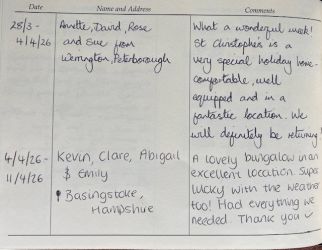 Date Name and Address Comments
28/3 - Annette, David, Rose What a wonderful week!
4/4/26 and Sue from St Christophers is a
Werrington, Peterborough very special holiday home -
comfortable, well
equipped and in a
fantastic location. We
will definitely be returning!
4/4/26 - Kevin, Clare, Abigail A lovely bungalow in an
11/4/26 & Emily excellent location. Super
Basingstoke, lucky with the weather
Hampshire too! Had everything we
needed. Thank you